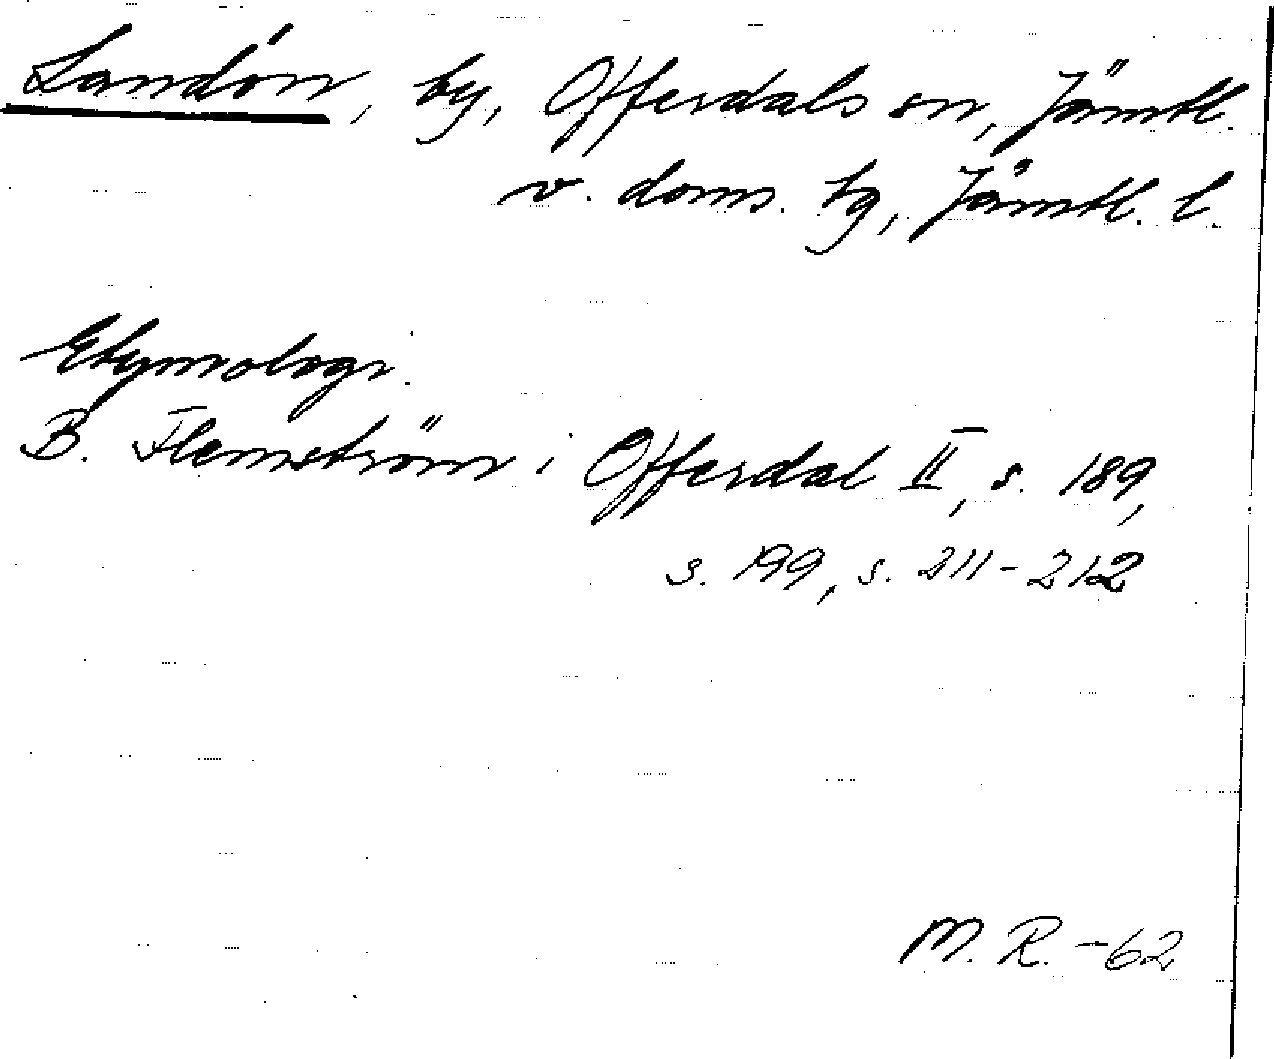 Landön, by, Offerdals sn, Jämtl.
v. doms. tg, Jämtl. l.
Etymologi.
B. Flemström i Offerdal II, s. 189,
s. 199, s. 211-212
M. R. -62